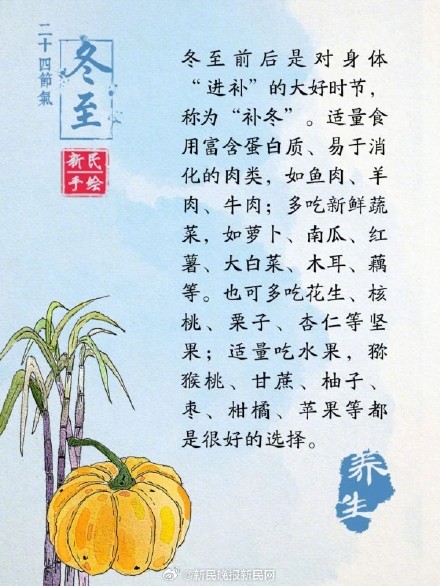 二十四節氣
冬至
新民
手绘
冬至前后是对身体
“进补”的大好时节，
称为“补冬”。适量食
用富含蛋白质、易于消
化的肉类，如鱼肉、羊
肉、牛肉；多吃新鲜蔬
菜，如萝卜、南瓜、红
薯、大白菜、木耳、藕
等。也可多吃花生、核
桃、栗子、杏仁等坚
果；适量吃水果，猕
猴桃、甘蔗、柚子、
枣、柑橘、苹果等都
是很好的选择。
养生
@新民晚报新民网